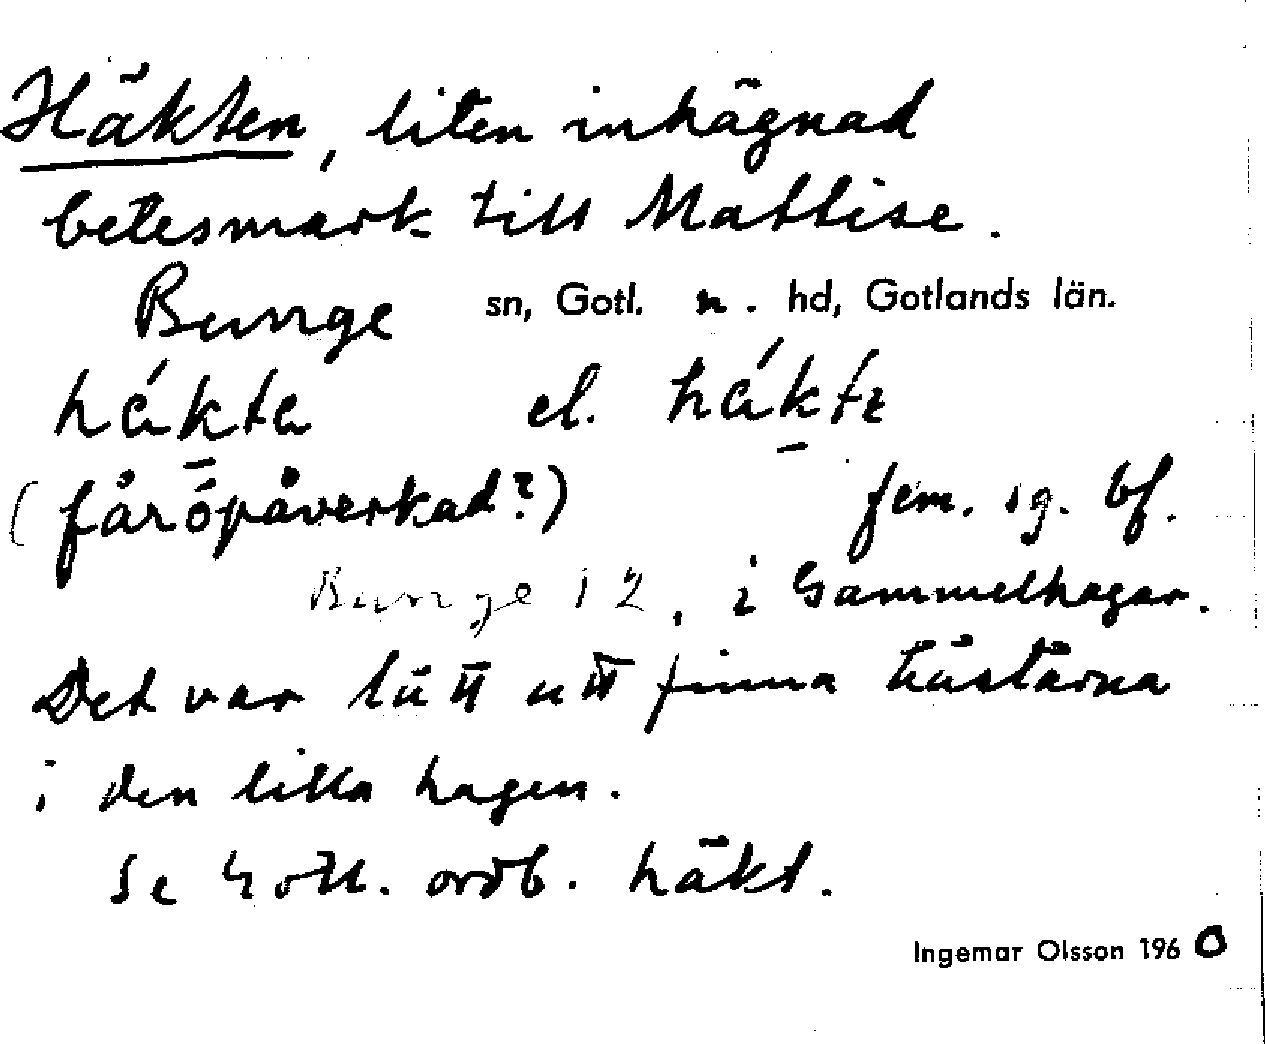 Häkten, liten inhägnad
betesmark till Mattise.
Bunge sn, Gotl. n. hd, Gotlands län.
hákta el. hákte
(fåröpåverkad?) fem. sg. bf.
Bunge 12, i Gammelhagar.
Det var lätt att finna hästarna
i den lilla hagen.
Se Gotl. ordb. häkt.
Ingemar Olsson 1960